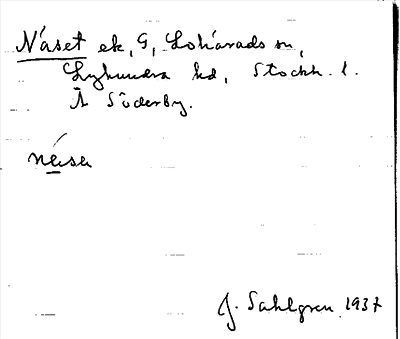 Näset ek, G, Lohärads sn,
Lyhundra hd, Stockh. l.
Å Söderby.
näsa
J. Sahlgren 1937